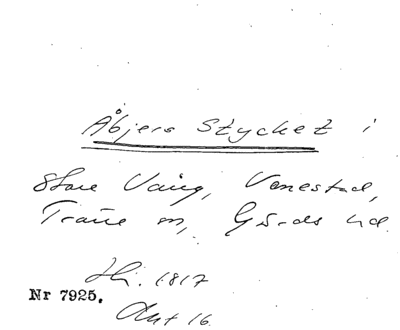 Åbjers Stycket i
Store Väng, Venestad,
Träne sn, Gärds hd.
Hi. 1817
Nr 7925.
Akt 16